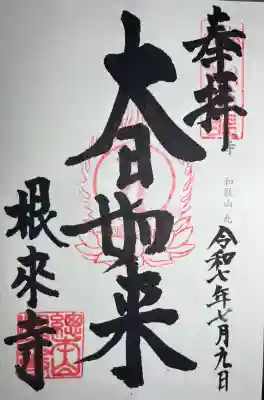 奉拝
令和七年七月九日
大日如来
根来寺